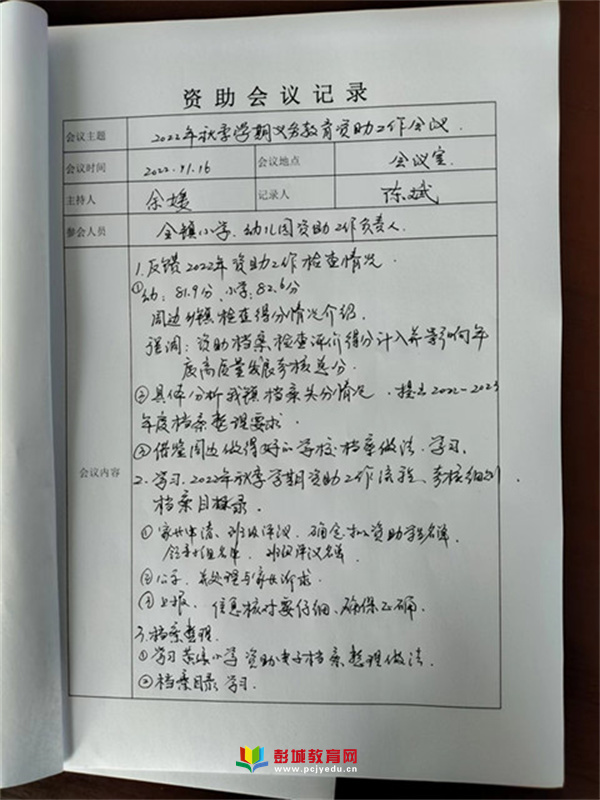 资助会议记录
会议主题 2022年秋季学期义务教育资助工作会议.
会议时间 2022.11.16 会议地点 会议室.
主持人 余媛 记录人 陈斌
参会人员 全镇小学、幼儿园资助工作负责人.
会议内容
1.反馈2022年资助工作检查情况.
①幼:81.9分、小学:82.6分
周边乡镇检查得分情况介绍.
强调:资助档案检查评价得分计入并影响年
度高质量发展考核总分.
②具体分析我镇档案失分情况.提出2022-2023
年度档案整理要求.
③借鉴周边做得好的学校档案做法.学习.
2.学习.2022年秋季学期资助工作流程、考核细则.
档案目录.
①家长申请、班级评议.确定拟资助学生名单.
小组名单.班级评议名单.
②公示.处理与家长诉求.
③上报.信息核对要仔细、确保正确.
3.档案整理.
①学习小学资助电子档案整理做法.
②档案目录学习.
彭城教育网
www.pcjyedu.cn